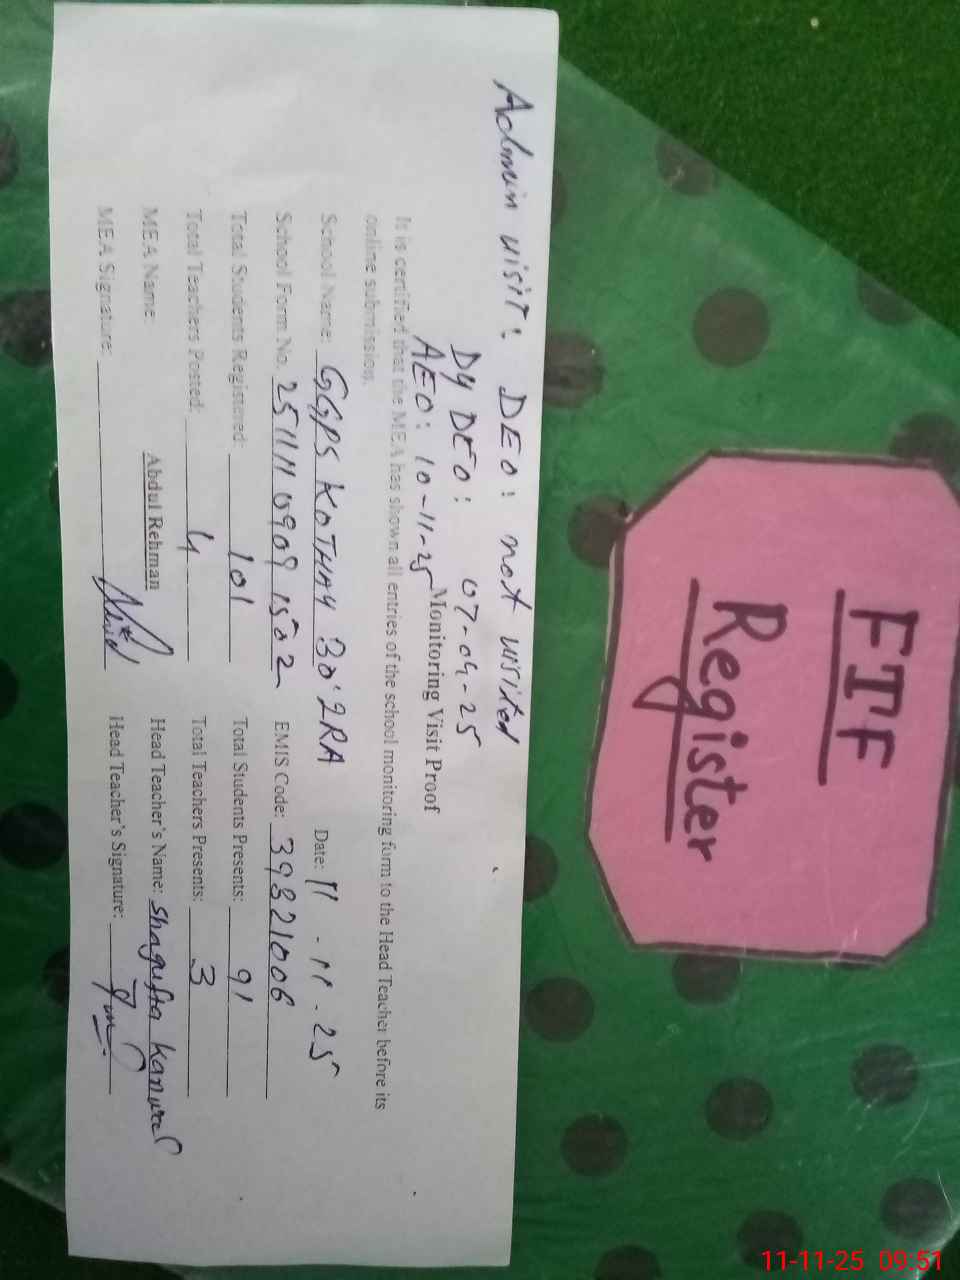 FTF
Register
Admin visit: DEO: not visited
Dy DEO: 07-04-25
AEO: 10-11-25
Monitoring Visit Proof
It is certified that the MEA has shown all entries of the school monitoring form to the Head Teacher before its
online submission.
School Name: GGPS KOTHAY 30'2RA Date: 11-11-25
School Form No. EMIS Code: 39321006
Total Students Registered: 101 Total Students Presents: 91
Total Teachers Posted: 4 Total Teachers Presents: 3
MEA Name: Abdul Rehman Head Teacher's Name: Shagufta Kanwal
MEA Signature: Head Teacher's Signature:
11-11-25 09:51